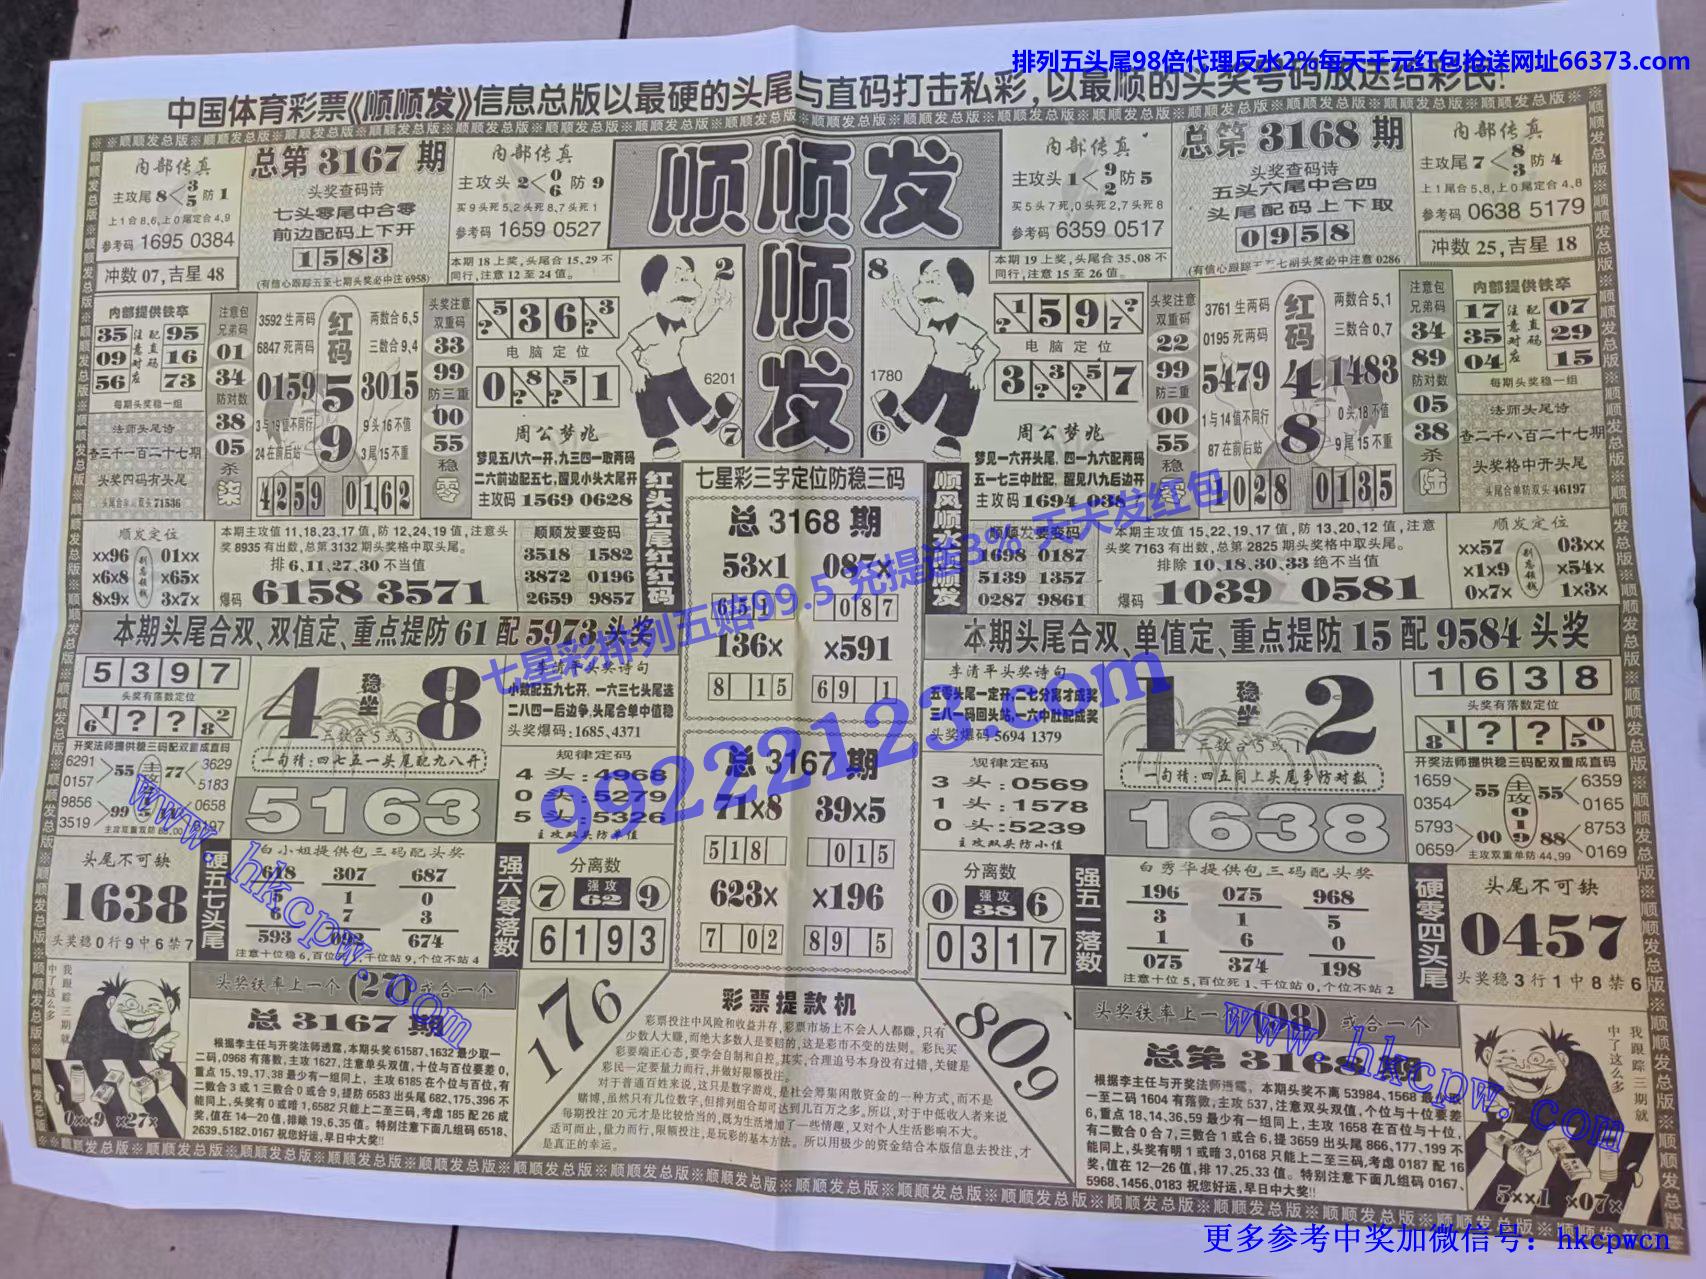 排列五头尾98倍代理反水2%每天千元红包抢送网址66373.com
中国体育彩票《顺顺发》信息总版以最硬的头尾与直码打击私彩,以最顺的头奖号码放送给彩民!
内部传真
主攻尾 8<3 5 防 1
上1合8,6,上0尾定合4,9
参考码 1695 0384
冲数 07,吉星 48
总第 3167 期
头奖查码诗
七头零尾中合零
前边配码上下开
1583
(有信心跟踪五至七期头奖必中注 6958)
内部传真
主攻头 2<0 6 防 9
买9头死5,2头死8,7头死1
参考码 1659 0527
本期 18 上奖,头尾合 15,29 不
同行,注意 12 至 24 值。
顺顺发
顺
发
内部传真
主攻头 1<9 2 防 5
买5头7死,0头死2,7头死8
参考码 6359 0517
本期 19 上奖,头尾合 35,08 不
同行,注意 15 至 26 值。
总第 3168 期
头奖查码诗
五头六尾中合四
头尾配码上下取
0958
(有信心跟踪五至七期头奖必中注意 0286
内部传真
主攻尾 7<8 3 防 4
上1尾合5,8,上0尾定合4,8
参考码 0638 5179
冲数 25,吉星 18
内部提供铁卒
35 注配 95
09 意直 16
56 对码应 73
每期头奖稳一组
法师头尾诗
查三千一百二十七期
头奖四码有头尾
头尾合单防双头 71536
注意包兄弟码
01
34
防对数
38
05
杀
柒
3592 生两码
6847 死两码
红码
两数合 6,5
三数合 9,4
0159 5 3015
9
3与19值不同行
9头16不值
24在前后站
3尾15不重
4259 0162
头奖注意双重码
33
99
防三重
00
55
稳
零
5? 3 6 3?
电脑定位
0 8? 5? 1
周公梦兆
梦见五八六一开,九三四一取两码
二六前边配五七,醒见小头大尾开
主攻码 1569 0628
2
6201
7
8
1780
6
?1 5 9 ?7
电脑定位
3 ?3 5? 7
周公梦兆
梦见一六开头尾,四一九六配两码
五一七三中肚配,醒见八九后边开
主攻码 1694 0387
头奖注意双重码
22
99
防三重
00
55
稳
零
3761 生两码
0195 死两码
红码
两数合 5,1
三数合 0,7
5479 4 1483
8
1与14值不同行
0头18不值
87在前后站
9尾15不重
1028 0135
注意包兄弟码
34
89
防对数
05
38
杀
陆
内部提供铁卒
17 注配 07
35 意直 29
04 对码应 15
每期头奖稳一组
法师头尾诗
查二千八百二十七期
头奖格中开头尾
头尾合单防双头 46197
顺发定位
xx96 01xx
x6x8 x65x
8x9x 3x7x
本期主攻值 11,18,23,17 值,防 12,24,19 值,注意头
奖 8935 有出数,总第 3132 期头奖格中取头尾。
排 6,11,27,30 不当值
爆码 6158 3571
顺顺发要变码
3518 1582
3872 0196
2659 9857
红头红尾红红码
七星彩三字定位防稳三码
总 3168 期
53x1 087x
651 087
136x x591
8 15 69 1
总 3167 期
71x8 39x5
518 015
623x x196
7 02 89 5
顺风顺水顺顺发
顺顺发要变码
1698 0187
5139 1357
0287 9861
本期主攻值 15,22,19,17 值,防 13,20,12 值,注意
头奖 7163 有出数,总第 2825 期头奖格中取头尾。
排除 10,18,30,33 绝不当值
爆码 1039 0581
顺发定位
xx57 03xx
x1x9 x54x
0x7x 1x3x
本期头尾合双、双值定、重点提防 61 配 5973 头奖
本期头尾合双、单值定、重点提防 15 配 9584 头奖
5397
头奖有落数定位
1 6 ? ? 8 2
开奖法师提供稳三码配双重成直码
6291 3629
0157 55 主攻 77 5183
9856 99 0658
3519 0197
4 稳坐 8
三数合 5 或 3
一句精:四七五一头尾配九八开
5163
李清平头奖诗句
小数配五九七开,一六三七头尾选
二八四一后边争,头尾合单中值稳
头奖爆码:1685,4371
规律定码
4 头:4968
0 头:5279
5 头:5326
主攻双头防单值
李清平头奖诗句
五零头尾一定开,二七分离才成奖
三八一码回头站,一六中肚配成奖
头奖爆码 5694 1379
规律定码
3 头:0569
1 头:1578
0 头:5239
主攻双头防小值
1 稳坐 2
三数合 5 或 1
一句精:四五同上头尾争防对数
1638
1638
头奖有落数定位
1 8 ? ? 5 0
开奖法师提供稳三码配双重成直码
1659 6359
0354 55 主攻 55 0165
5793 00 0 1 9 88 8753
0659 0169
主攻双重单防 44,99
头尾不可缺
1638
头奖稳 0 行 9 中 6 禁 7
硬五七头尾
白小姐提供包三码配头奖
618 307 687
5 1 0
6 7 3
593 092 674
强六零落数
分离数
7 强攻 62 9
6193
分离数
0 强攻 38 6
0317
强五一落数
白秀华提供包三码配头奖
196 075 968
3 1 5
1 6 0
075 374 198
注意十位 5,百位死 1,千位站 0,个位不站 2
硬零四头尾
头尾不可缺
0457
头奖稳 3 行 1 中 8 禁 6
我跟踪三期就
中了这么多
0xx9 x27x
头奖铁率上一个 (27) 或合一个
总 3167 期
根据李主任与开奖法师透露,本期头奖 61587,1632 最少取一
二码,0968 有落数,主攻 1627,注意单头双值,十位与百位要差 0,
重点 15,19,17,38 最少有一组同上, 主攻 6185 在个位与百位,有
二数合 3 或 1 三数合 0 或合 9,提防 6583 出头尾 682,175,396 不
能同上,头奖有 0 或暗 1,6582 只能上二至三码,考虑 185 配 26 成
奖,值在 14—20 值,排除 19,6,35 值。特别注意下面几组码 6518,
2639,5182,0167 祝您好运,早日中大奖!!
176
彩票提款机
彩票投注中风险和收益并存,彩票市场上不会人人都赚,只有
少数人大赚,而绝大多数人是要赔的,这是彩市不变的法则。彩民买
彩要端正心态,要学会自制和自控,其实,合理追号本身没有过错,关键是
彩民一定要量力而行,并做好限额投注。
对于普通百姓来说,这只是数字游戏,是社会筹集闲散资金的一种方式,而不是
赌博,虽然只有几位数字,但排列组合却可达到几百万之多。所以,对于中低收入者来说
每期投注 20 元才是比较恰当的,既为生活增加了一些情趣,又对个人生活影响不大。
适可而止,量力而行,限额投注,是玩彩的基本方法。所以用极少的资金结合本版信息去投注,才
是真正的幸运。
809
头奖铁率上一个 (98) 或合一个
总第 3168 期
根据李主任与开奖法师透露,本期头奖不离 53984,1568 最
一至二码 1604 有落微,主攻 537,注意双头双值,个位与十位要差
6,重点 18,14,36,59 最少有一组同上,主攻 1658 在百位与十位,
有二数合 0 合 7,三数合 1 或合 6,提 3659 出头尾 866,177,199 不
能同上,头奖有明 1 或暗 3,0168 只能上二至三码,考虑 0187 配 16
奖,值在 12—26 值,排 17,25,33 值。特别注意下面几组码 0167,
5968,1456,0183 祝您好运,早日中大奖!!
我跟踪三期就
中了这么多
5xx1 x07x
七星彩排列五赔99.5 充提送3% 天天发红包
99222123.com
www.hkcpw.com
www.hkcpw.com
更多参考中奖加微信号:hkcpwcn